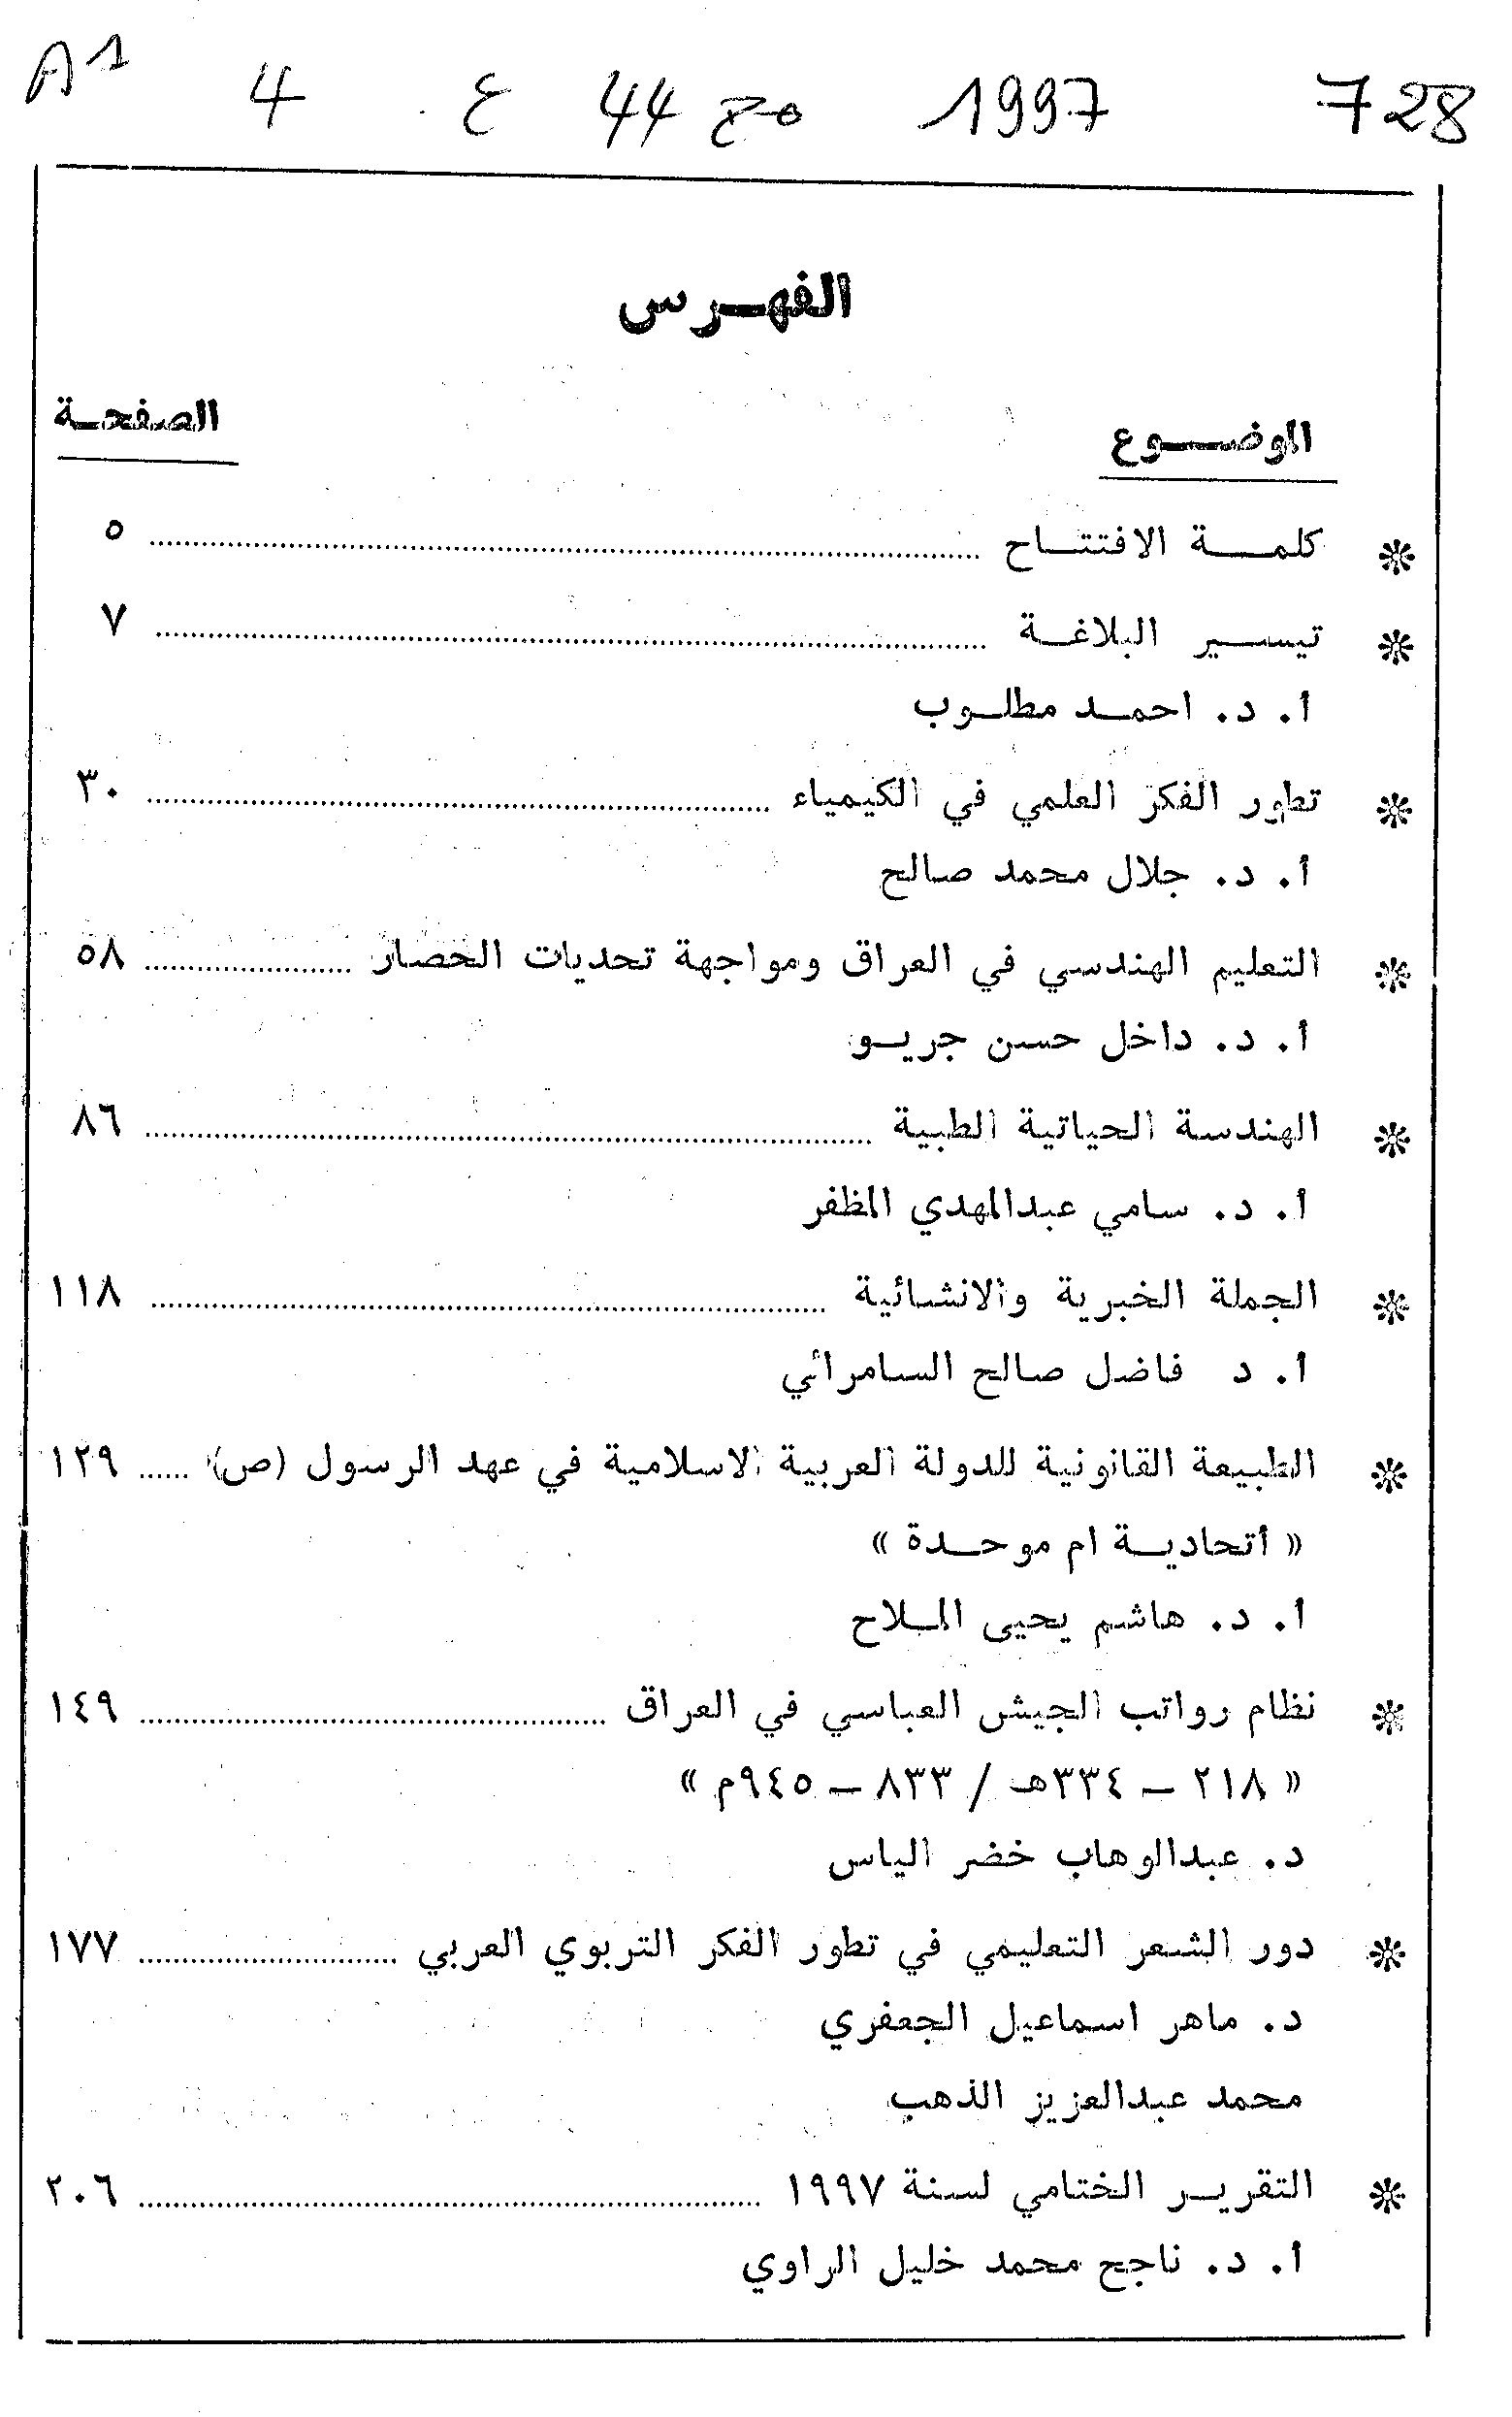 728 1997 مج 44 ع 4 A1
الفهــرس
الموضــوع الصفحـة
* كلمــة الافتتــاح ........ ٥
* تيســير البلاغـة ........ ٧
أ. د. احمـد مطلـوب
* تطور الفكر العلمي في الكيمياء ........ ٣٠
أ. د. جلال محمد صالح
* التعليم الهندسي في العراق ومواجهة تحديات الحصار ........ ٥٨
أ. د. داخل حسن جريـو
* الهندسة الحياتية الطبية ........ ٨٦
أ. د. سامي عبدالمهدي المظفر
* الجملة الخبرية والانشائية ........ ١١٨
أ. د فاضل صالح السامرائي
* الطبيعة القانونية للدولة العربية الاسلامية في عهد الرسول (ص) ...... ١٢٩
« أتحاديـة ام موحـدة »
أ. د. هاشم يحيى المـلاح
* نظام رواتب الجيش العباسي في العراق ........ ١٤٩
« ٢١٨ – ٣٣٤هـ / ٨٣٣ – ٩٤٥م »
د. عبدالوهاب خضر الياس
* دور الشعر التعليمي في تطور الفكر التربوي العربي ........ ١٧٧
د. ماهر اسماعيل الجعفري
محمد عبدالعزيز الذهب
* التقريـر الختامي لسنة ١٩٩٧ ........ ٢٠٦
أ. د. ناجح محمد خليل الراوي